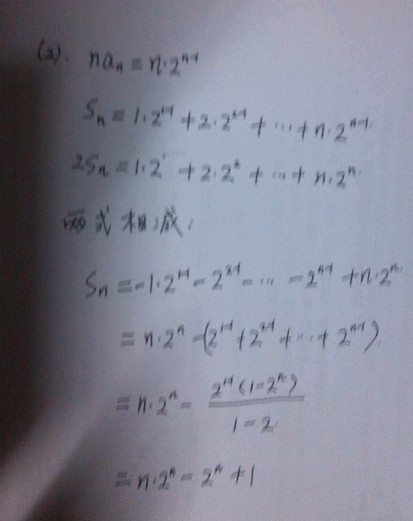 (2). naₙ = n·2ⁿ⁻¹
Sₙ = 1·2¹⁻¹ + 2·2²⁻¹ + ··· + n·2ⁿ⁻¹.
2Sₙ = 1·2¹ + 2·2² + ··· + n·2ⁿ.
两式相减,
Sₙ = -1·2¹⁻¹ - 2²⁻¹ - ··· - 2ⁿ⁻¹ + n·2ⁿ.
= n·2ⁿ - (2¹⁻¹ + 2²⁻¹ + ··· + 2ⁿ⁻¹)
= n·2ⁿ - 2¹⁻¹(1-2ⁿ)/(1-2)
= n·2ⁿ - 2ⁿ + 1